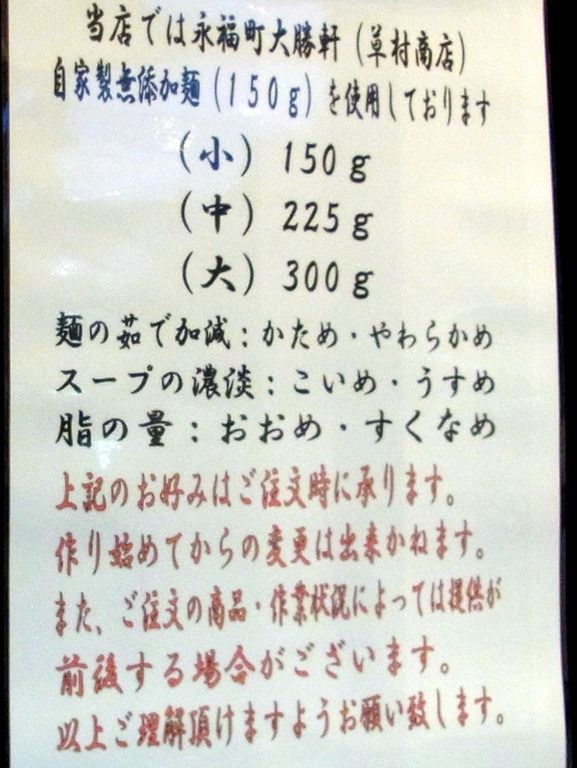 当店では永福町大勝軒(草村商店)
自家製無添加麺(150g)を使用しております
(小) 150g
(中) 225g
(大) 300g
麺の茹で加減:かため・やわらかめ
スープの濃淡:こいめ・うすめ
脂の量:おおめ・すくなめ
上記のお好みはご注文時に承ります。
作り始めてからの変更は出来かねます。
また、ご注文の商品・作業状況によっては提供が
前後する場合がございます。
以上ご理解頂けますようお願い致します。